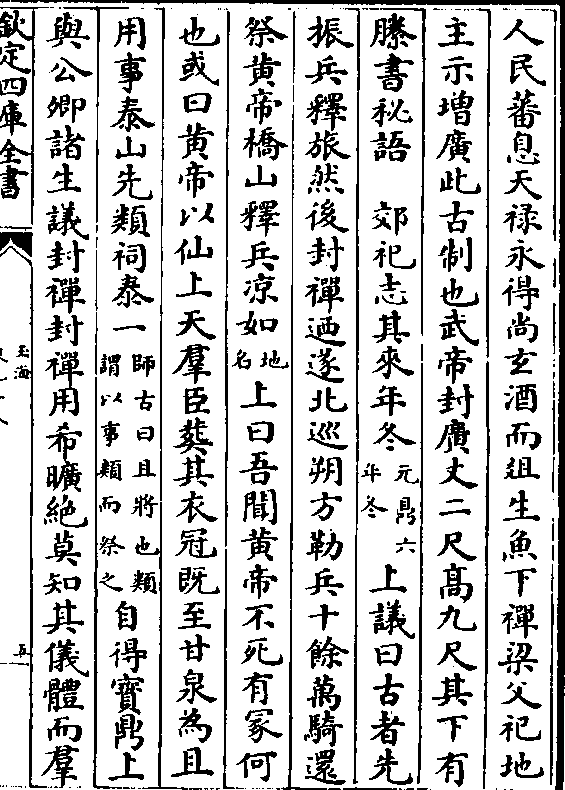 人民蕃息天禄永得尚玄酒而俎生魚下禪梁父祀地
主示增廣此古制也武帝封廣丈二尺髙九尺其下有
牒書秘語　郊祀志其來年冬元鼎六年冬上議曰古者先
振兵釋旅然後封禪迺遂北巡朔方勒兵十餘萬騎還
祭黄帝橋山釋兵凉如地名上曰吾聞黄帝不死有冢何
也或曰黄帝以仙上天羣臣葬其衣冠既至甘泉為且
用事泰山先類祠泰一師古曰且將也類謂以事類而祭之自得寳鼎上
與公卿諸生議封禪封禪用希曠絶莫知其儀體而羣
欽定四庫全書
玉海
五